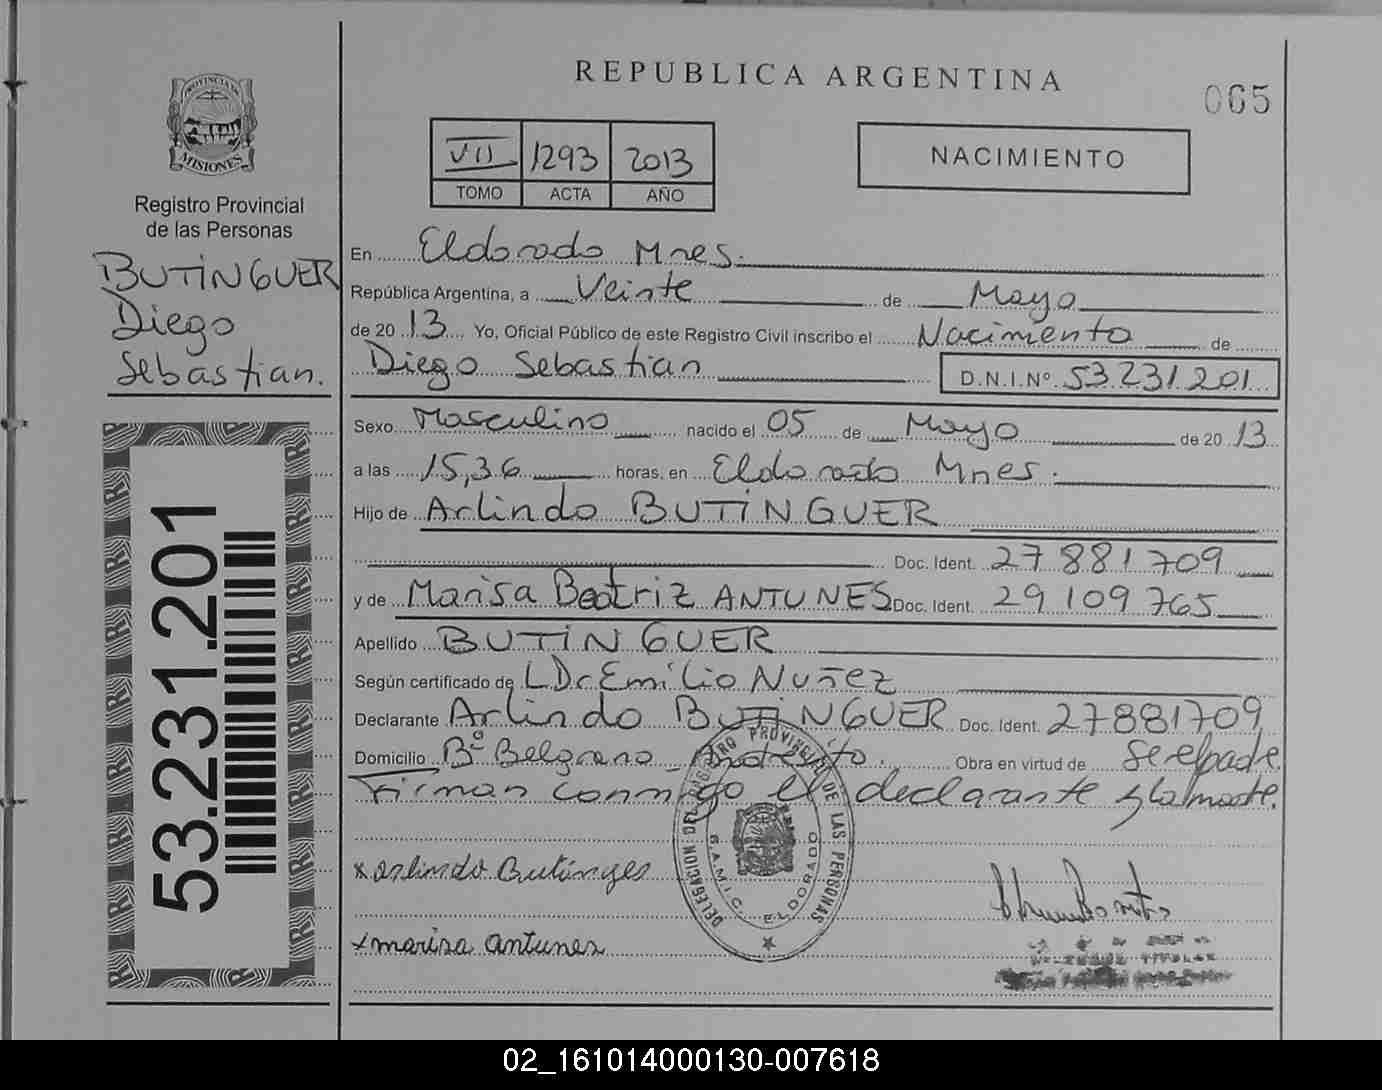 REPUBLICA ARGENTINA
065
PROVINCIA DE
MISIONES
Registro Provincial
de las Personas
BUTINGUER
Diego
Sebastian.
53.231.201
VII 1293 2013
TOMO ACTA AÑO
NACIMIENTO
En Eldorado Mnes.
República Argentina, a Veinte de Mayo
de 20 13 Yo, Oficial Público de este Registro Civil inscribo el Nacimiento de
Diego Sebastian D.N.I.Nº 53.231.201
Sexo Masculino nacido el 05 de Mayo de 20 13
a las 15,36 horas, en Eldorado Mnes.
Hijo de Arlindo BUTINGUER
Doc. Ident. 27 881 709
y de Marisa Beatriz ANTUNES Doc. Ident. 29 109 765
Apellido BUTINGUER
Según certificado de LDr Emilio Nuñez
Declarante Arlindo BUTINGUER Doc. Ident. 27881709
Domicilio Bº Belgrano Andresito. Obra en virtud de ser el padre.
Firman conmigo el declarante y la madre.
x arlindo Butinger
x marisa antunes
DELEGACION DEL REGISTRO PROVINCIAL DE LAS PERSONAS
S.A.M.I.C. ELDORADO
02_161014000130-007618